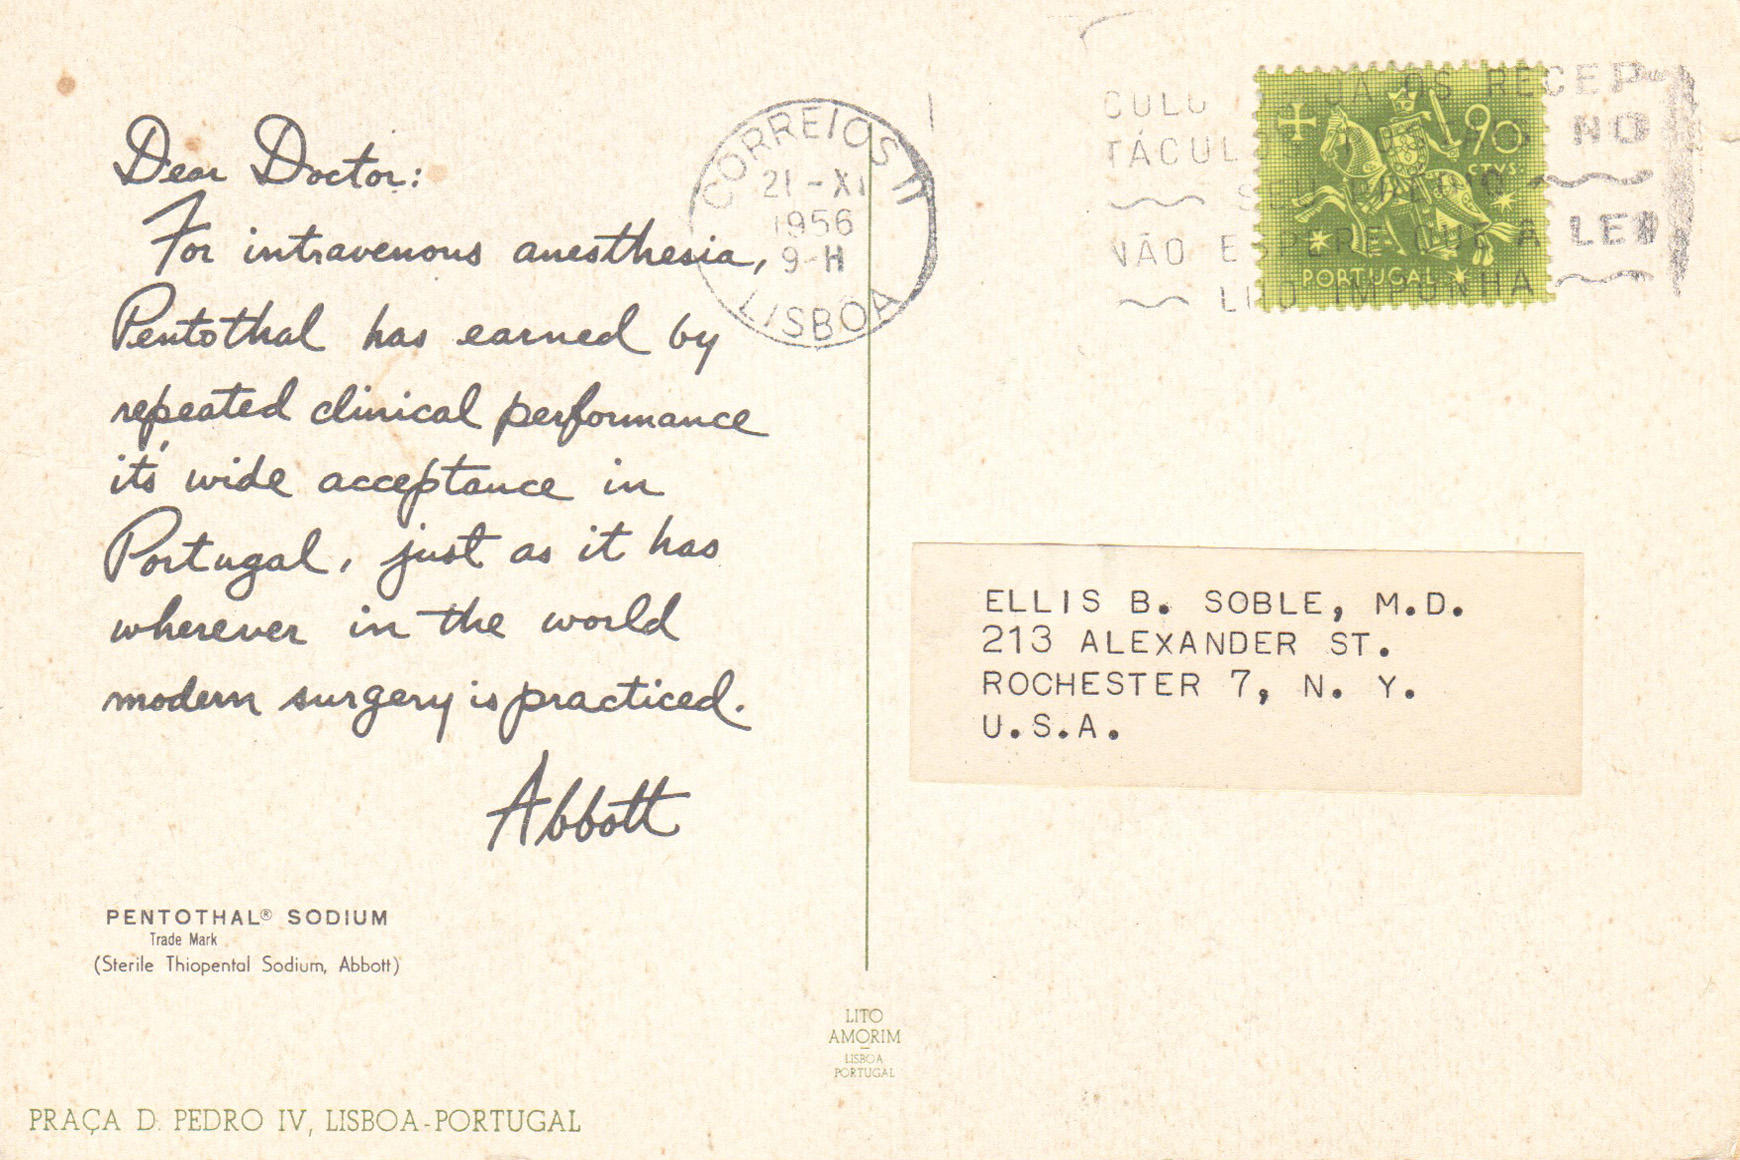 Dear Doctor:
For intravenous anesthesia,
Pentothal has earned by
repeated clinical performance
it's wide acceptance in
Portugal, just as it has
wherever in the world
modern surgery is practiced.
Abbott
PENTOTHAL® SODIUM
Trade Mark
(Sterile Thiopental Sodium, Abbott)
PRAÇA D. PEDRO IV, LISBOA-PORTUGAL
CORREIOS
21-XI
1956
9-H
LISBOA
OS RECEP-
NO
NÃO ESPERE QUE A LEI
IMPONHA
90
CTVS.
PORTUGAL
ELLIS B. SOBLE, M.D.
213 ALEXANDER ST.
ROCHESTER 7, N. Y.
U.S.A.
LITO
AMORIM
LISBOA
PORTUGAL